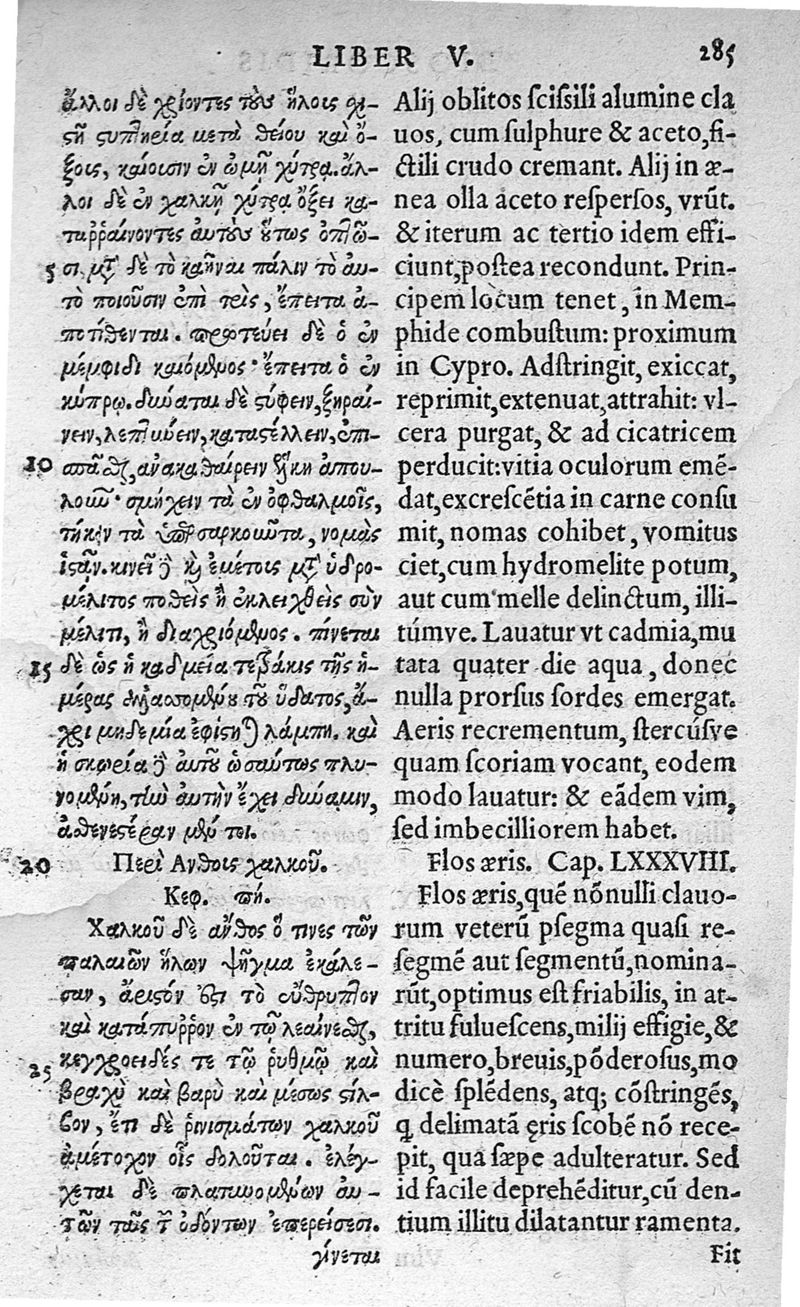 LIBER V. 285
ἄλλοι δὲ χρίοντες τοὺς ἥλους σχι-
στῇ στυπτηρία μετὰ θείου καὶ ὄ-
ξους, καίουσιν ἐν ὠμῇ χύτρα. ἄλ-
λοι δὲ ἐν χαλκῇ χύτρα ὄξει κα-
ταῤῥαίνοντες αὐτοὺς οὕτως ὀπτῶ-
5 σι. μετὰ δὲ τὸ καῆναι πάλιν τὸ αὐ-
τὸ ποιοῦσιν ἐπὶ τρὶς, ἔπειτα ἀ-
ποτίθενται. πρωτεύει δὲ ὁ ἐν
μέμφιδι καιόμενος· ἔπειτα ὁ ἐν
κύπρῳ. δύναται δὲ στύφειν, ξηραί-
νειν, λεπτύνειν, καταστέλλειν, ἐπι-
10 σπᾶσθαι, ἀνακαθαίρειν ἕλκη ἀπου-
λοῦν· σμήχειν τὰ ἐν ὀφθαλμοῖς,
τήκειν τὰ ὑπερσαρκοῦντα, νομὰς
ἱστᾶν. κινεῖ δὲ καὶ ἐμέτοις μετὰ ὑδρο-
μέλιτος ποθεὶς ἢ ἐκλειχθεὶς σὺν
μέλιτι, ἢ διαχριόμενος. πίνεται
15 δὲ ὡς ἡ καδμεία τετράκις τῆς ἡ-
μέρας ἀλλασσομένου τοῦ ὕδατος, ἄ-
χρι μηδεμία ἐφίστηται λάμπη. καὶ
ἡ σκωρία δὲ αὐτοῦ ὡσαύτως πλυ-
νομένη, τὴν αὐτὴν ἔχει δύναμιν,
ἀσθενεστέραν μέν τοι.
20 Περὶ Ανθους χαλκοῦ.
Κεφ. πή.
Χαλκοῦ δὲ ἄνθος ὅ τινες τῶν
παλαιῶν ἥλων ψῆγμα ἐκάλε-
σαν, ἄριστόν ἐστι τὸ εὔθρυπτον
καὶ κατάπυῤῥον ἐν τῷ λεαίνεσθαι,
25 κεγχροειδές τε τῷ ῥυθμῷ καὶ
βραχὺ καὶ βαρὺ καὶ μέσως στίλ-
βον, ἔτι δὲ ῥινισμάτων χαλκοῦ
ἀμέτοχον οἷς δολοῦται. ἐλέγ-
χεται δὲ πλατυνομένων αὐ-
τῶν ταῖς τῶν ὀδόντων ἐπερείσεσι.
γίνεται
Alij oblitos ſciſſili alumine cla
uos, cum ſulphure & aceto, fi-
ctili crudo cremant. Alij in æ-
nea olla aceto reſperſos, vrũt.
& iterum ac tertio idem effi-
ciunt, poſtea recondunt. Prin-
cipem locum tenet, in Mem-
phide combuſtum: proximum
in Cypro. Adſtringit, exiccat,
reprimit, extenuat, attrahit: vl-
cera purgat, & ad cicatricem
perducit: vitia oculorum emẽ-
dat, excreſcẽtia in carne conſu
mit, nomas cohibet, vomitus
ciet, cum hydromelite potum,
aut cum melle delinctum, illi-
túmve. Lauatur vt cadmia, mu
tata quater die aqua, donec
nulla prorſus ſordes emergat.
Aeris recrementum, ſtercúſve
quam ſcoriam vocant, eodem
modo lauatur: & eãdem vim,
ſed imbecilliorem habet.
Flos æris. Cap. LXXXVIII.
Flos æris, quẽ nõnulli clauo-
rum veterũ pſegma quaſi re-
ſegmẽ aut ſegmentũ, nomina-
rũt, optimus eſt friabilis, in at-
tritu fuluefcens, milij effigie, &
numero, breuis, põderoſus, mo
dicè ſplẽdens, atq; cõſtringẽs,
q delimatã ęris ſcobẽ nõ rece-
pit, qua ſæpe adulteratur. Sed
id facile deprehẽditur, cũ den-
tium illitu dilatantur ramenta.
Fit